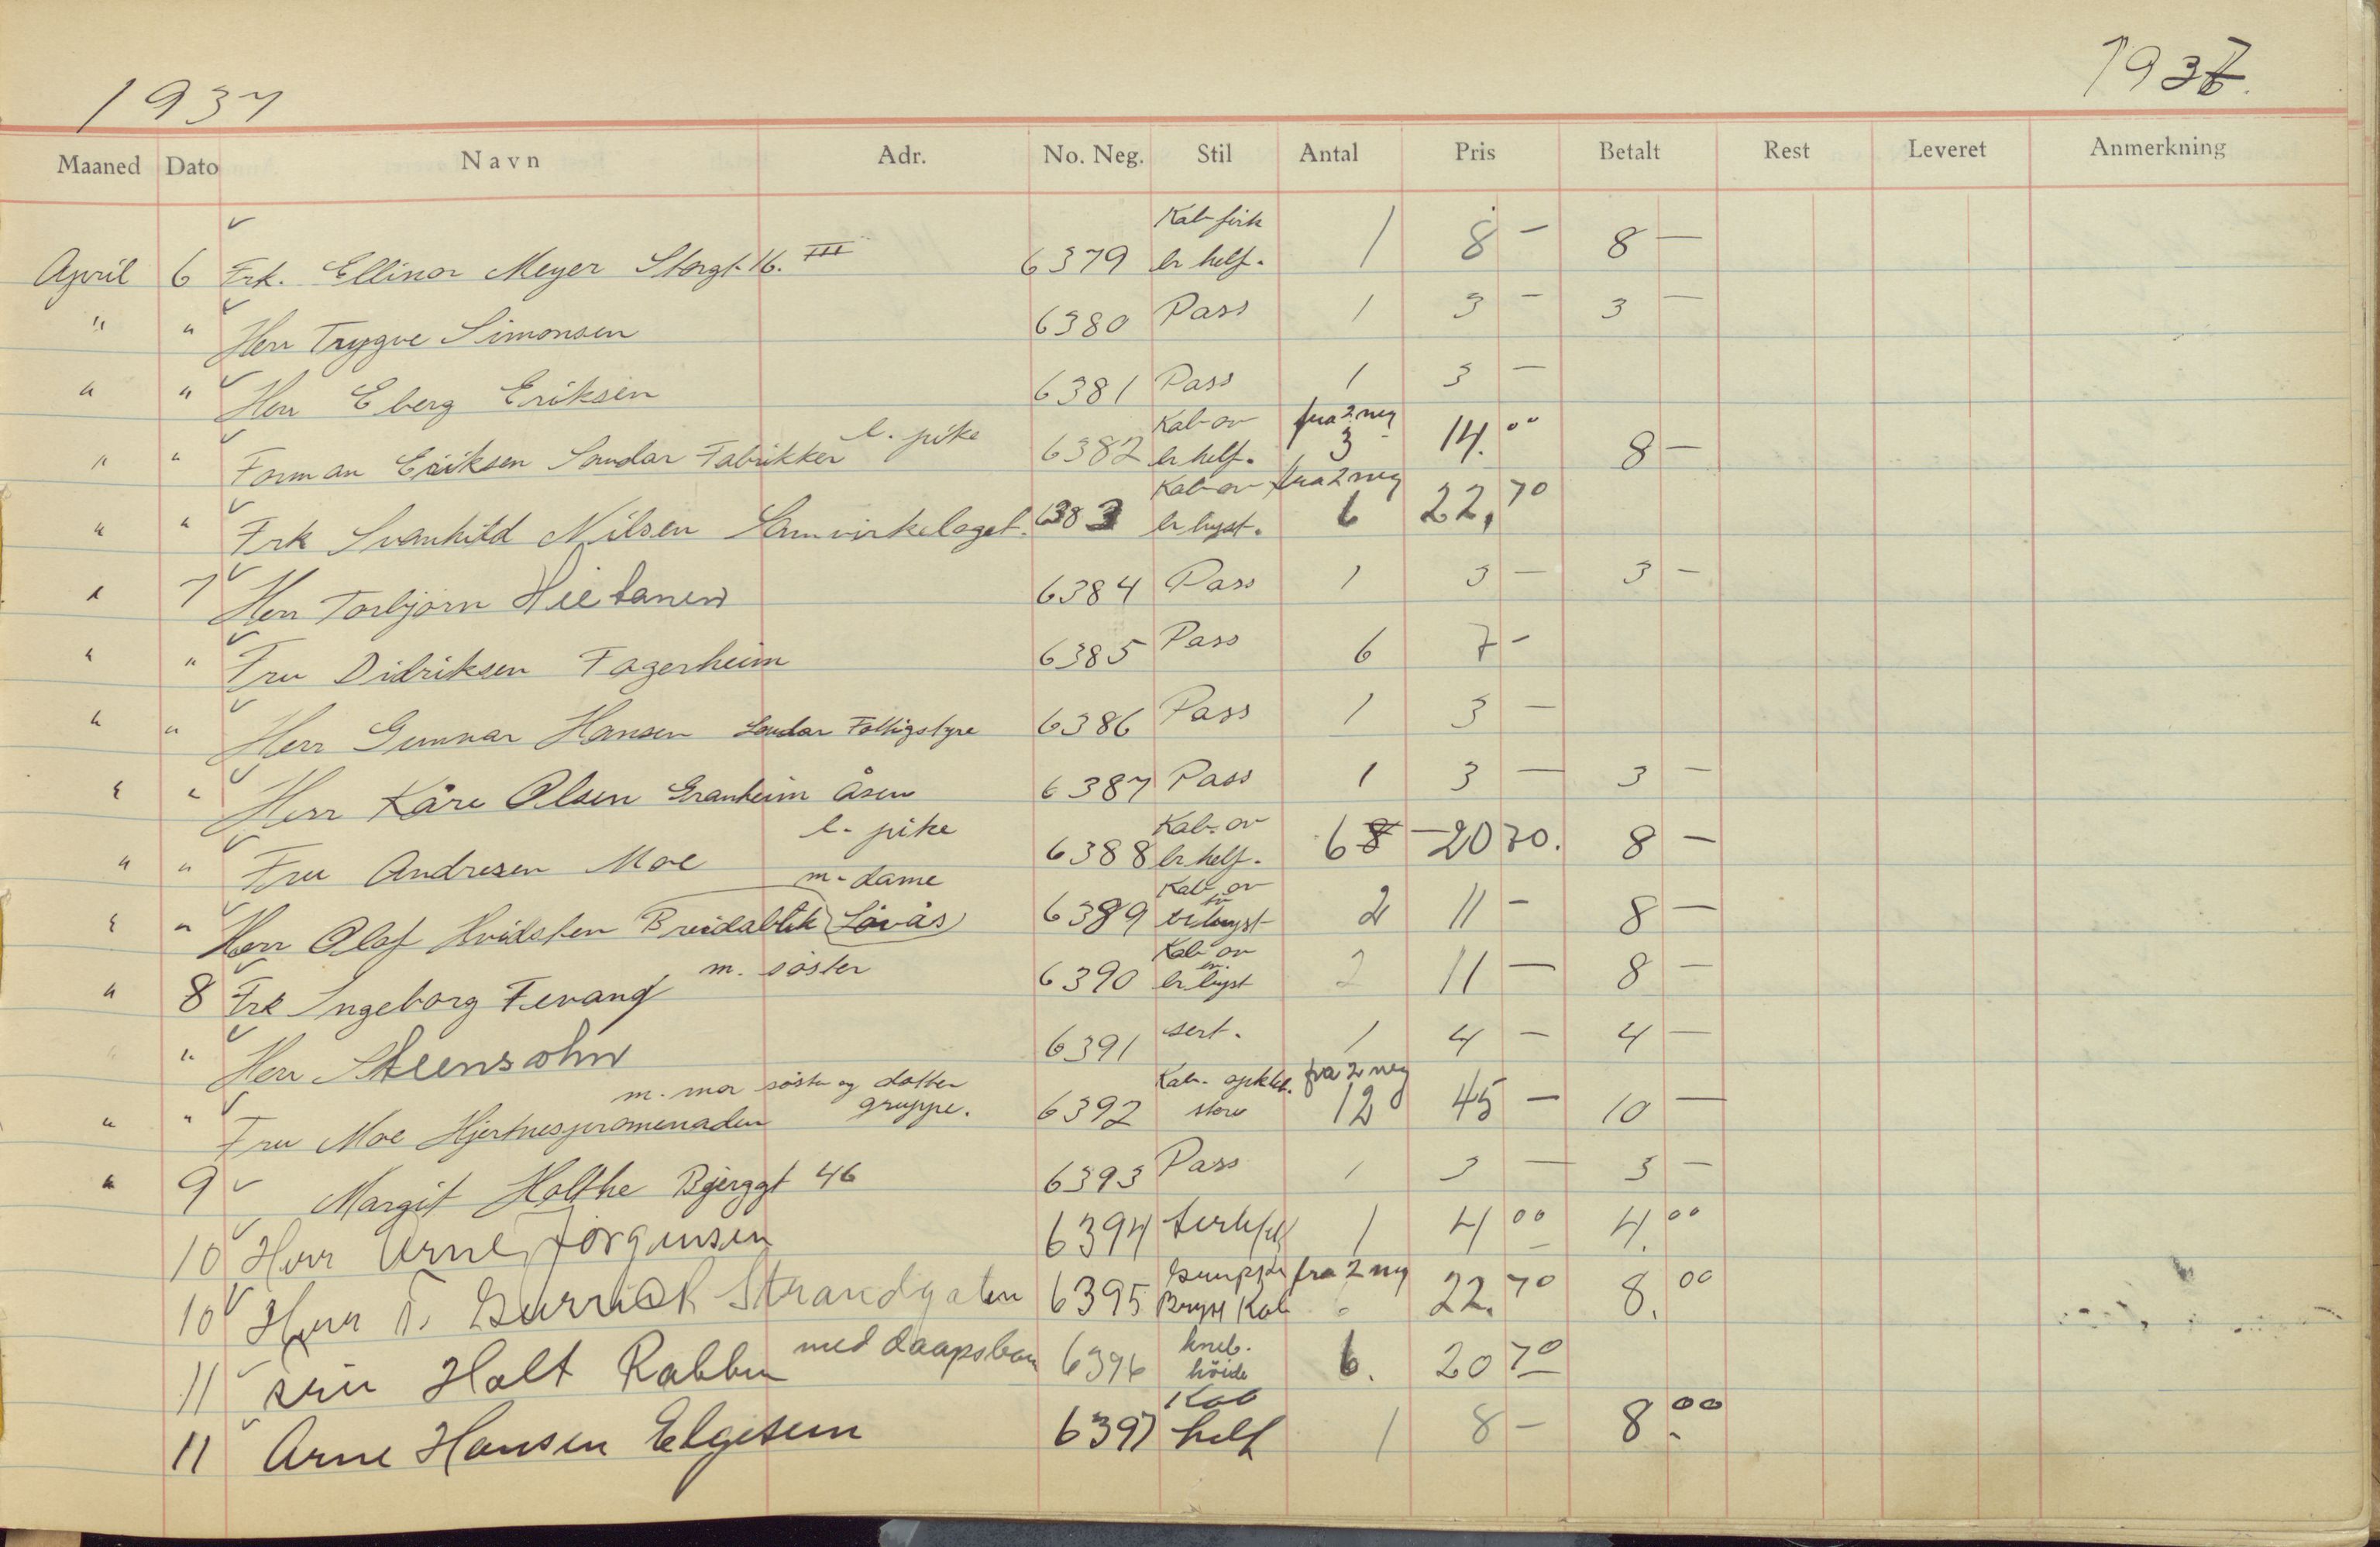 1937 1937.
Maaned Dato Navn Adr. No. Neg. Stil Antal Pris Betalt Rest Leveret Anmerkning
Kab
April 6 Frk. Ellinor Meyer Storgt. 16. III 6379 br helf. 1 8 — 8 —
" " Herr Trygve Simonsen 6380 Pass 1 3 — 3 —
" " Herr Eberg Eriksen 6381 Pass 1 3 —
l. pike Kab or fra 2 neg
" " Forman Eriksen Sandar Fabrikker 6382 br helf. 3 14.00 8 —
Kab or fra 2 neg
" " Frk Svanhild Nilsen Samvirkelaget. 6383 br bryst. 6 22,70
" 7 Herr Torbjørn Hietanen 6384 Pass 1 3 — 3 —
" " Fru Didriksen Fagerheim 6385 Pass 6 7 —
" " Herr Gunnar Hansen Sandar Fattigstyre 6386 Pass 1 3 —
" " Herr Kåre Olsen Granheim Åsen 6387 Pass 1 3 — 3 —
l. pike Kab. or
" " Fru Andresen Moe 6388 br helf. 6 8 — 20 70. 8 —
m. dame Kab or
" " Herr Olaf Hvidsten Breidablik Løvås 6389 bryst 2 11 — 8 —
m. søster Kab or
" 8 Frk Ingeborg Fevang 6390 br bryst 2 11 — 8 —
" " Herr Steensohn 6391 sert. 1 4 — 4 —
m. mor søster og datter Kab. fra 2 neg
" " Fru Moe Hjertnespromenaden gruppe. 6392 store 12 45 — 10 —
" 9 Margit Holthe Bjerggt 46 6393 Pass 1 3 — 3 —
10 Herr Arne Jørgensen 6394 1 4 00 4.00
fra 2 neg
10 Herr T. Strandgaten 6395 Bryst Kab 22.70 8.00
med daapsbarn kneb.
11 Fru Holt Rabben 6396 høide 6. 20 70
Kab
11 Arne Hansen Elgesem 6397 helf 1 8 — 8.00